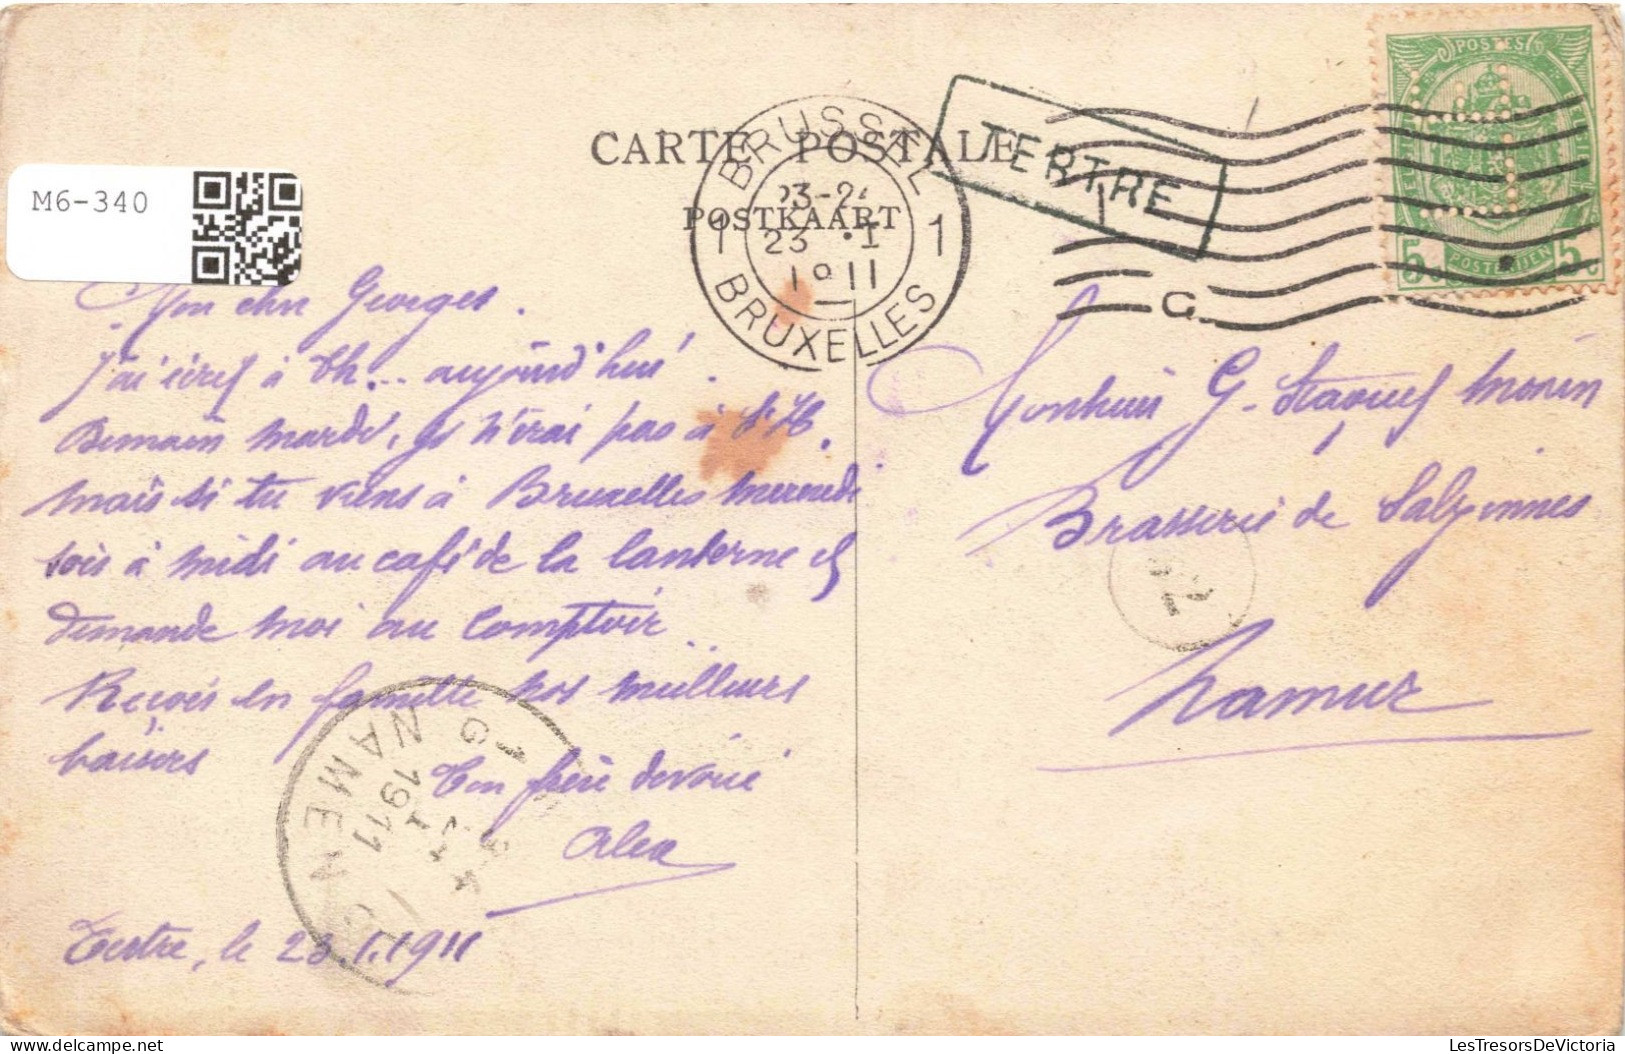 M6-340
CARTE POSTALE
POSTKAART
BRUSSEL
1 23 I 1
1911
BRUXELLES
TERTRE
POSTES
5c POSTERIJEN 5c
G
Mon cher Georges.
J'ai écrit à Th... aujourd'hui.
Demain mardi, je n'irai pas à St H.
mais si tu viens à Bruxelles mercredi
sois à midi au café de la lanterne et
demande moi au Comptoir.
Reçois en famille nos meilleurs
baisers
Ton frère dévoué
Alex
Tertre, le 23.1.1911
NAMEN
1911
Monsieur G. Morin
Brasserie de Salzinnes
Namur
LesTresorsDeVictoria